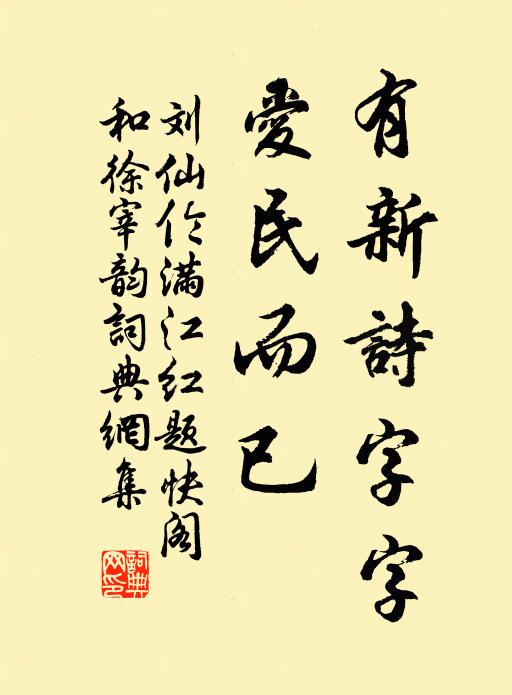 有新詩字字
愛民而已
刘仙伦满江红题快阁
和徐宰韵詞典網集
詞典網印